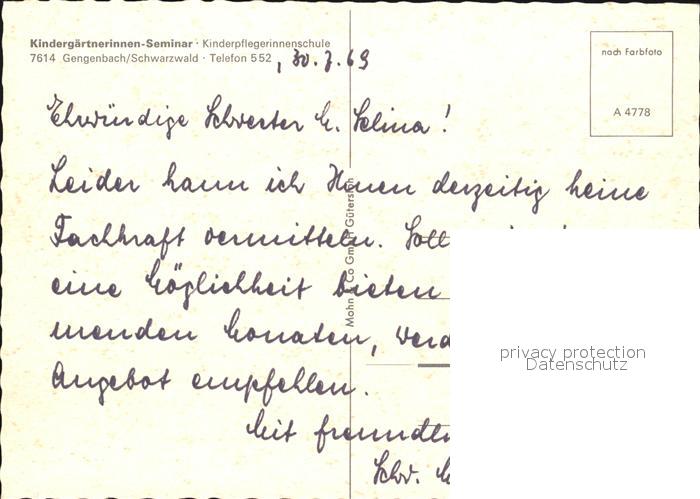 Kindergärtnerinnen-Seminar · Kinderpflegerinnenschule
7614 Gengenbach/Schwarzwald · Telefon 552, 30.7.69
nach Farbfoto
A 4778
Ehrwürdige Schwester M. Selina!
Leider kann ich Ihnen derzeitig keine
Fachkraft vermitteln. Soll
eine Möglichkeit bieten
menden Monaten, werd
Angebot empfehlen.
Mit freundl
Schw. M
Mohn & Co GmbH Gütersloh
privacy protection
Datenschutz